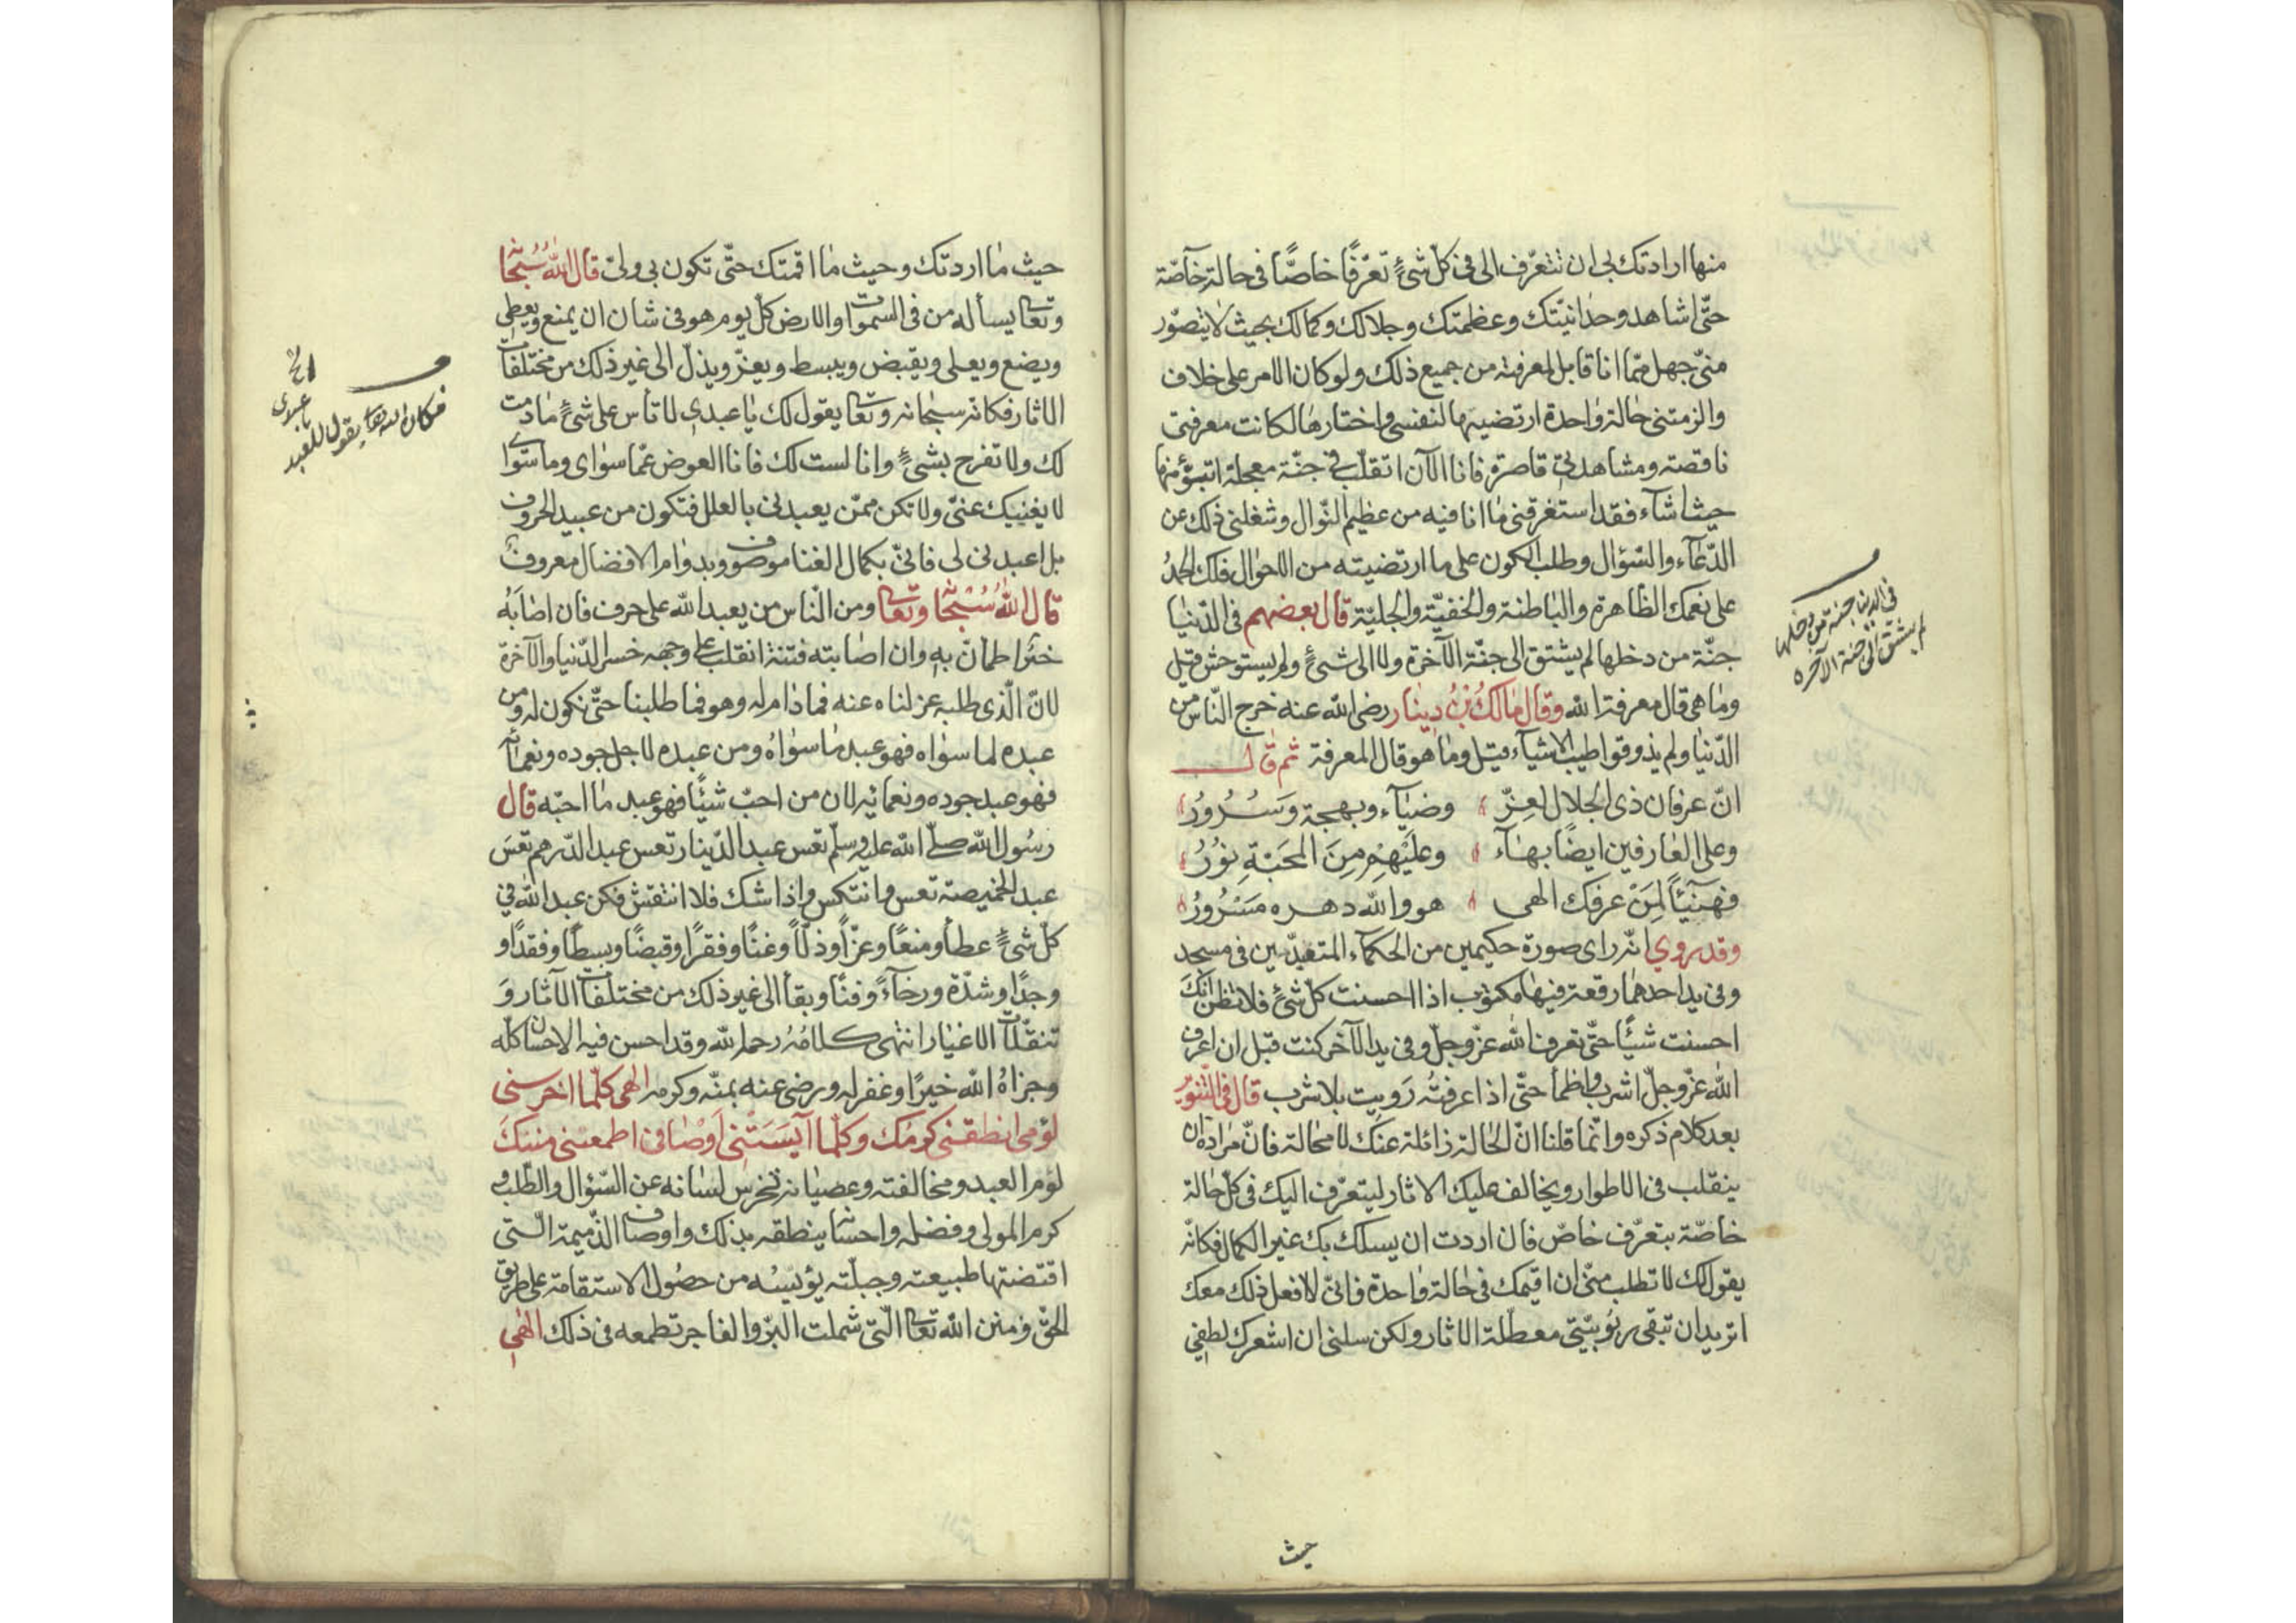 منها ارادتك بى ان تتعرّف الى فى كلّ شئٍ تعرّفًا خاصًّا فى حالة خآصّة
حتّى اشاهد وحدانيّتك وعظمتك وجلالك وكمالك بحيث لا يتصوّر
منّى جهل ممّا انا قابل لمعرفته من جميع ذلك ولو كان الامر على خلاف
والزمتنى حالة واحدة ارتضيتها لنفسى واختارها لكانت معرفتى
ناقصته ومشاهدتى قاصرة فانا الآن اتقلّب فى جنّة معجلة اتبوّؤ منها
حيث اشآء فقد استغرقنى ما انا فيه من عظيم النّوال وشغلنى ذلك عن
الدّعآء والسّؤال وطلب الكون على ما ارتضيته من الاحوال فلك الحمدُ
على نعمك الظاهرة والباطنة والخفيّة والجليّة قال بعضهم فى الدّنيا
جنّة من دخلها لم يشتق الى جنّة الآخرة ولا الى شئٍ ولم يستوحش قيل
وما هى قال معرفة الله وقال مالكُ بْنُ دِينار رضى الله عنه خرج النّاس من
الدّنيا ولم يذوقوا طيب الاشيآء قيل وما هو قال المعرفة ثم قال
انّ عرفان ذى الجلال لعِزّ وضيآء وبهجة وَسُرُورُ
وعلى العارفين ايضًا بهآء وعَلَيْهِمْ مِنَ المحَبّةِ نوُرُ
فهنَيئًا لِمَنْ عرفك الهى هو والله دهره مَسْرُورُ
وقد روي انّه راى صورة حكيمين من الحكمآء المتعبدّين فى مسجد
وفى يد احدهما رقعة فيها مكتوب اذا احسنت كلّ شئ فلا تظن انّكَ
احسنت شيئًا حتّى تعرف الله عزّ وجلّ وفى يد الآخر كنت قبل ان اعرف
الله عزّ وجلّ اشرب واظمأ حتّى اذا عرفتُه رَويت بلا شرب قال فى التّنوير
بعد كلام ذكره وانّما قلنا انّ الحالة زائلة عنك لا محالة فانّ مراده ان
ينقلب فى الاطوار ويخالف عليك الاثار ليتعرّف اليك فى كلّ حالة
خاصّة بتعرّف خاصّ فان اردت ان يسلك بك غير الكمال فكانّه
يقول لك لا تطلب منّى ان اقيمك فى حالة واحدة فانّى لا افعل ذلك معك
اتريد ان تبقى ربوبيّتى معطّلة الاثار ولكن سلنى ان اشعرك لطفى
فى الدنيا جنة من دخلها
لم يشتق الى جنة الآخره
حيث
حيث ما اردتك وحيث ما اقمتك حتّى تكون بى ولىّ قال اللهُ سُبْحٰا
وتعا يسأله من فى السّموات والارض كلّ يوم هو فى شان ان يمنع ويعطى
ويضع ويعلى ويقبض ويبسط ويعزّ ويذلّ الى غير ذلك من مختلفات
الاثار فكانّه سبحانه وتعا يقول لك يا عبدى لا تأس على شئٍ ما دمت
لك ولا تفرح بشئٍ وانا لست لك فانا العوض عمّا سواى وما سوٰاى
لا يغنيك عنّى ولا تكن ممّن يعبدنى بالعلل فتكون من عبيد الحروف
بل اعبدنى لى فانىّ بكمال الغنا موصوف وبدوام الافضال معروف
قال اللهُ سُبْحٰا وتعا ومن النّاس من يعبد الله على حرف فان اصابهُ
خيرُ اطمانّ به وان اصابته فتنة انقلب على وجهه خسر الدّنيا والآخرة
لانّ الّذى طلبه عزلناه عنه فما دام له وهو فما طلبنا حتّى نكون له ومن
عبده لما سواه فهو عبد ما سواهُ ومن عبده لاجل جوده ونعمائه
فهو عبد جوده ونعمائه لان من احبّ شيئًا فهو عبد ما احبّه قال
رسُول الله صلّى الله عليه وسلّم تعس عبد الدّينار تعس عبد الدّرهم تعسَ
عبد الخميصة تعس وانتكس واذا شك فلا انتقش فكن عبد الله فى
كلّ شئٍ عطأ ومنعًا وعزّاً وذلّاً وغنًا وفقرًا وقبضًا وبسطًا وفقدًا و
وجدًا وشدّة ورخآءً وفنًا وبقأ الى غير ذلك من مختلفات الآثار وَ
تنقّلات الاغيار انتهى كلامُهُ رحمه الله وقد احسن فيه الاحسان كلّه
وجزاهُ الله خيرًا وغفر له ورضى عنه بمنّه وكرمه الهى كلّما اخرسنى
لؤمى انطقنى كرمك وكلّما آيَسَتْنى اَوْصَافى اطمعتنى مننكَ
لؤم العبد ومخالفته وعصيانه تخرس لسانه عن السّؤال والطّلب و
كرم المولى وفضله واحسانه ينطقه بذلك واوصاف الذّميمة الّتى
اقتضتها طبيعته وجبلّته يؤيسُه من حصُول الاستقامة على طريق
الحقّ ومنن الله تعا الّتى شملت البرّ والفاجر تطمعه فى ذلك الهٰى
فكان الله تعا يقول للعبد
يا عبدى
الخ